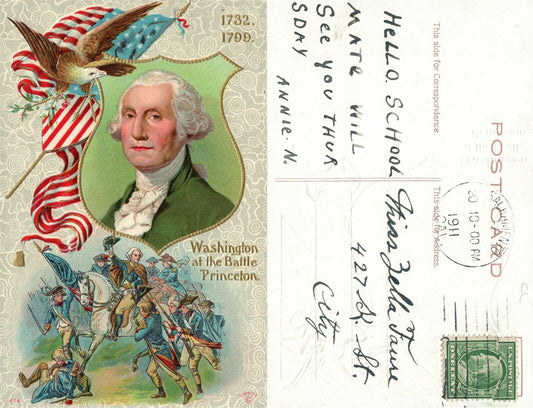 1732.
1799.
Washington
at the Battle
Princeton.
HELLO. SCHOOL
MATE WILL
SEE YOU THUR
SDAY
ANNIE. N.
This side for Correspondence.
POST CARD
This side for Address.
1911
10-00 PM
Miss Zella
427 K. St.
City
U.S. POSTAGE